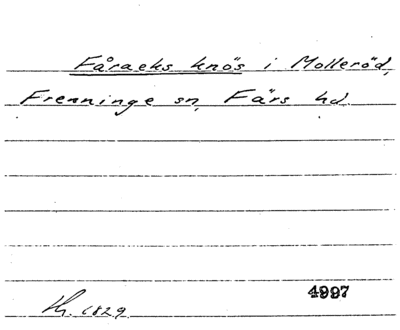 Fåraeks knös i Molleröd,
Frenninge sn, Färs hd.
4997
Hg. 1829